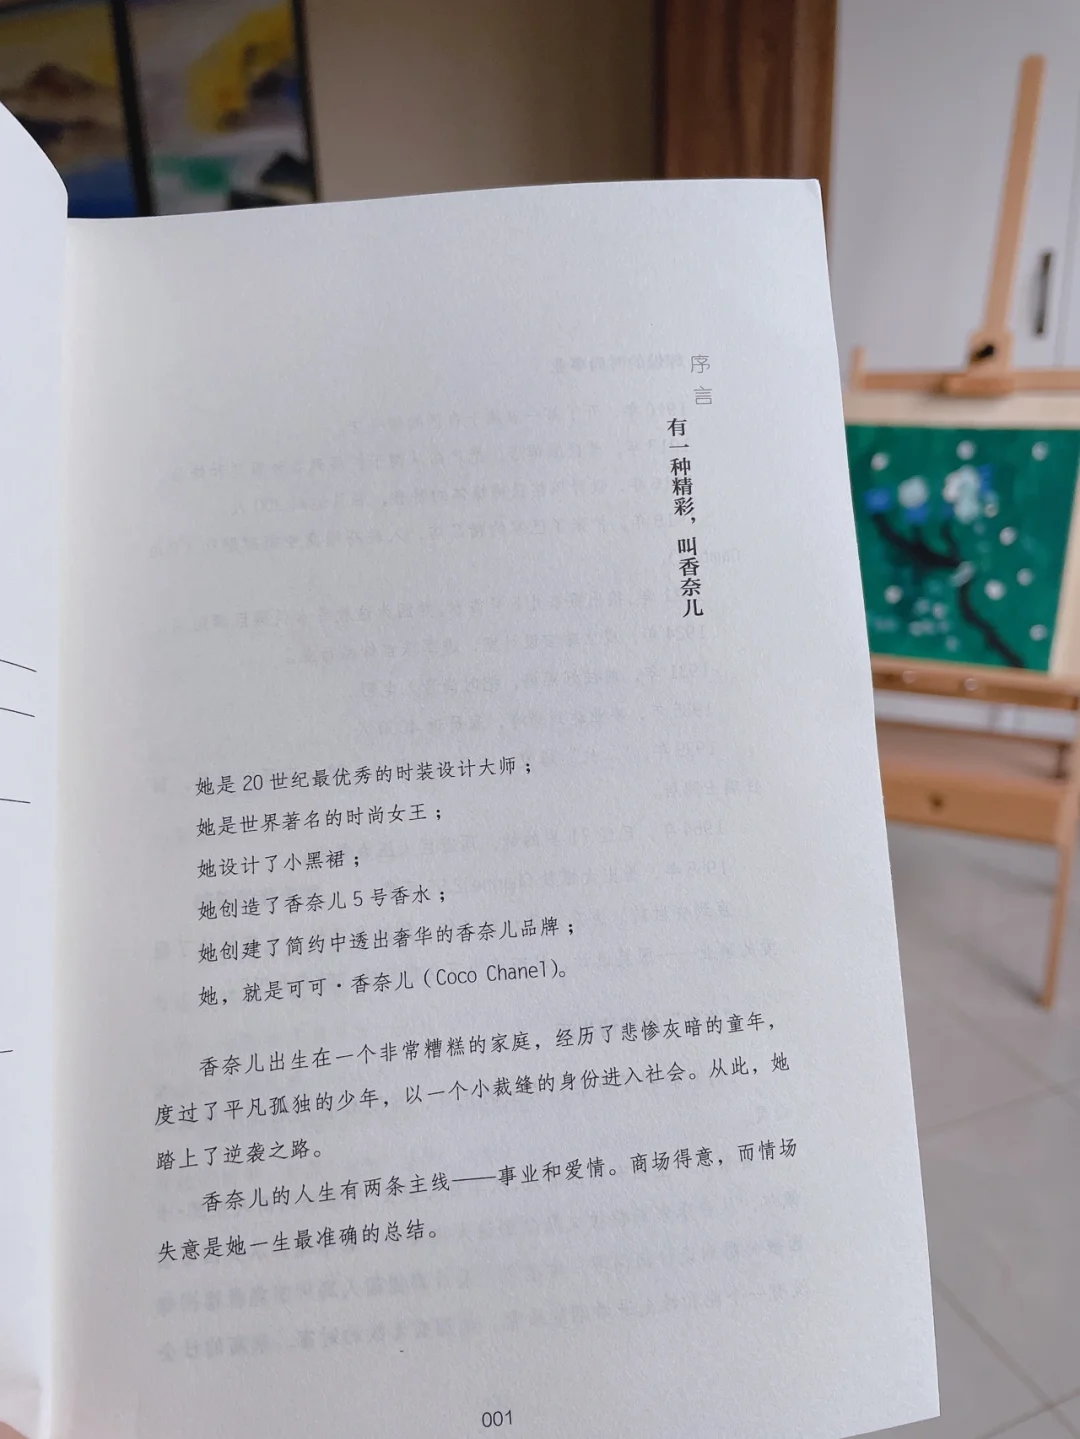 序言
有一种精彩，叫香奈儿
她是 20 世纪最优秀的时装设计大师；
她是世界著名的时尚女王；
她设计了小黑裙；
她创造了香奈儿 5 号香水；
她创建了简约中透出奢华的香奈儿品牌；
她，就是可可·香奈儿（Coco Chanel）。
香奈儿出生在一个非常糟糕的家庭，经历了悲惨灰暗的童年，
度过了平凡孤独的少年，以一个小裁缝的身份进入社会。从此，她
踏上了逆袭之路。
香奈儿的人生有两条主线——事业和爱情。商场得意，而情场
失意是她一生最准确的总结。
001